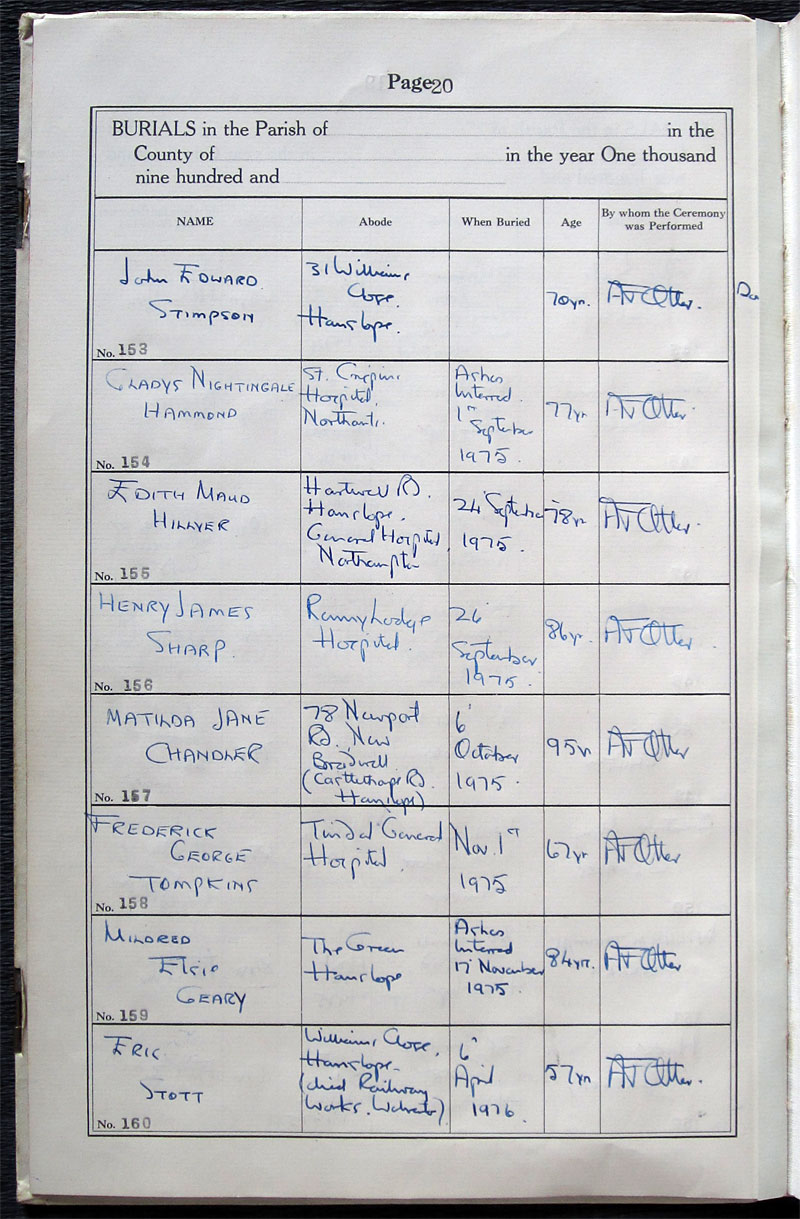 Page 20
BURIALS in the Parish of in the
County of in the year One thousand
nine hundred and
NAME Abode When Buried Age By whom the Ceremony was Performed
John EDWARD
STIMPSON
No. 153
31 Williams
Close.
Hanslope.
70yr.
A J Otter.
Da
GLADYS NIGHTINGALE
HAMMOND
No. 154
St. Crispin
Hospital.
Northants.
Ashes
Interred.
1st
September
1975.
77yr
A J Otter.
EDITH MAUD
HILLYER
No. 155
Hartwell Rd.
Hanslope.
General Hospital,
Northampton
24 September
1975.
78yr
A J Otter.
HENRY JAMES
SHARP.
No. 156
Renny Lodge
Hospital.
26
September
1975.
86yr.
A J Otter.
MATILDA JANE
CHANDLER
No. 157
78 Newport
Rd. New
Bradwell
(Castlethorpe Rd.
Hanslope)
6
October
1975.
95yr
A J Otter
FREDERICK
GEORGE
TOMPKINS
No. 158
Tindal General
Hospital.
Nov. 1st
1975
67yr
A J Otter
MILDRED
Elsie
GEARY
No. 159
The Green
Hanslope
Ashes
Interred
17 November
1975.
84yr.
A J Otter
ERIC
STOTT
No. 160
Williams Close,
Hanslope-
(died Railway
Works. Wolverton)
6
April
1976.
57yr
A J Otter.